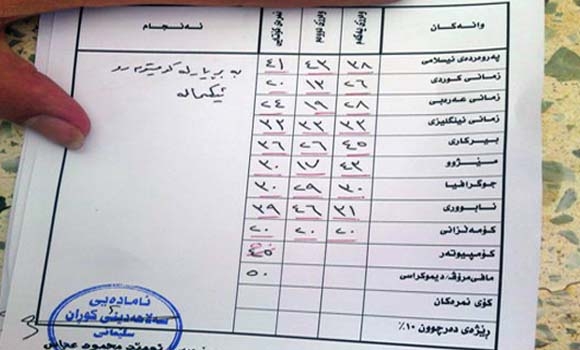 وانەکان	وەرزی یەکەم	وەرزی دووەم	نمرەی کۆتایی	ئەنجام
پەروەردەی ئیسلامی	٣٨	٤٣	٤١
زمانی کوردی	٢٦	١٣	٢٠
زمانی عەرەبی	٢٨	١٩	٢٤
زمانی ئینگلیزی	٣٣	٣٣	٣٣
بیرکاری	٤٥	٢٦	٣٦
مێژوو	٤٣	١٧	٣٠
جوگرافیا	٣٠	٢٩	٣٠
ئابووری	٣١	٤٦	٣٩
کۆمەڵزانی	٢٠	٢٠	٢٠
کۆمپیوتەر
مافی مرۆڤ/دیموکراسی	٥٠
کۆی نمرەکان
ڕێژەی دەرچوون ١٠٪
بە بڕیاری
ئامادەیی
سەلاحەدینی کوران
سلێمانی
محمود